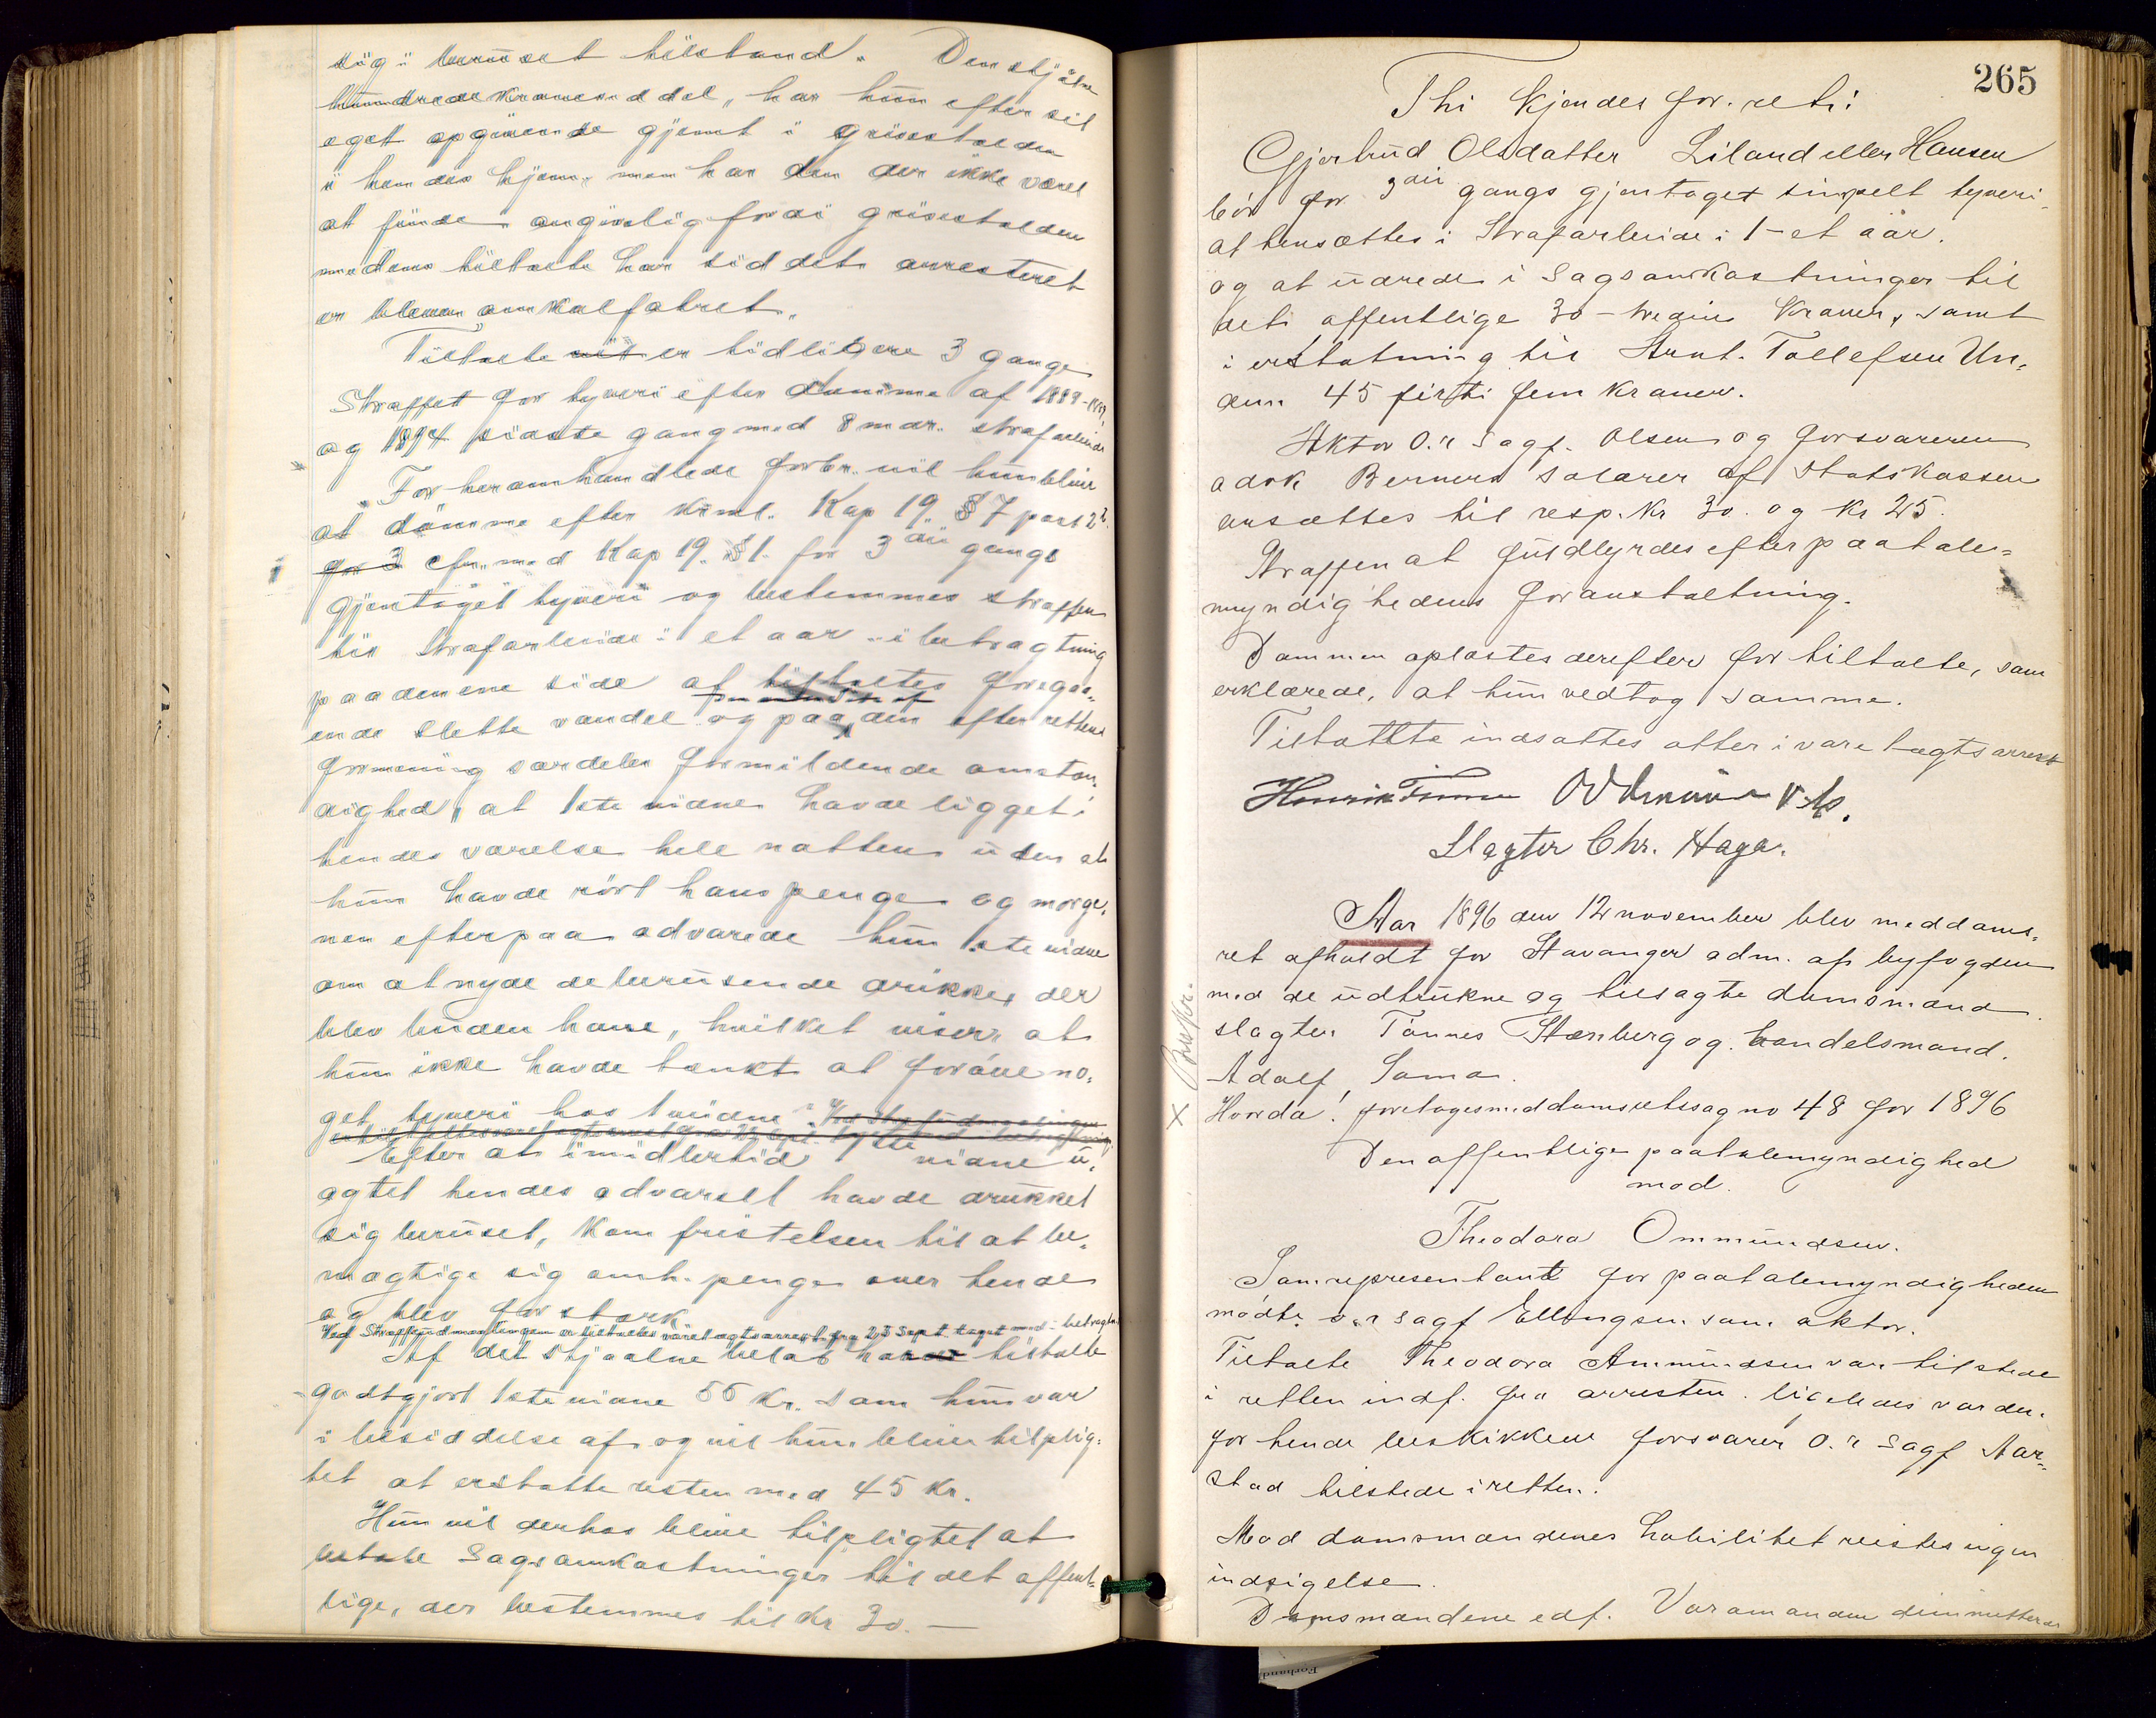 sig i beruset tilstand. Den stjålne
hundredekroneseddel, har hun efter sit
eget opgivende gjemt i grisestalden
i hendes hjem, men har den der ikke været
at finde angivelig fordi grisestalden
medens tiltalte har siddet arresteret
er bleven omkalfatret.
Tiltalte er tidligere 3 gange
Straffet for tyveri efter domme af 1889 -
og 1894 sidste gang med 8 mdr. strafarbeide
For heromhandlede forbr. vil hun blive
at dømme efter krml. Kap 19 § 7 post 2
for 3 cfr. med Kap 19. § 1. for 3die gangs
gjentaget tyveri og bestemmes straffen
til Strafarbeide i et aar i betragtning
paa den ene side af tiltaltes foregaa-
ende slette vandel og paa den efter rettens
formening særdeles formildende omstæn-
dighed, at 1ste vidne havde ligget i
hendes værelse hele natten uden at
hun havde rört hans penge og morge-
nen efterpaa advarede hun 1ste vidne
om at nyde de berusende drikke, der
blev buden ham, hvilket viser at
hun ikke havde tænkt at foröve no-
get tyveri hos 1 vidne.
Efter at imidlertid 1ste vidne u-
agtet hendes advarsel havde drukket
sig beruset, kom fristelsen til at be-
mægtige sig omh. penge over hende
og blev for stærk.
Ved Straffudmaalingen er tiltaltes varetægtsarrest fra 23 Sept. taget med i betragtn.
Af det stjaalne beløb har tiltalte
godtgjort 1ste vidne 55 Kr. som hun var
i besiddelse af og vil hun blive tilplig-
tet at erstatte resten med 45 Kr.
Hun vil derhos blive tilpligtet at
betale Sagsomkostninger til det offent-
lige, der bestemmes til Kr 30.—
265
Thi kjendes for ret:
Gjertrud Olsdatter Liland eller Hansen
bör for 3die gangs gjentaget simpelt tyveri
at hensættes i Strafarbeide i 1 - et aar.
og at udrede i Sagsomkostninger til
det offentlige 30 - tredive Kroner, samt
i erstatning til Arnt. Tollefsen Un-
dem 45 firti fem Kroner.
Aktor O.r Sagf. Olsen og forsvareren
adv. Berners salærer af Statskassen
ansættes til resp. Kr 30. og Kr 25.
Straffen at fuldbyrdes efter paatale-
myndighedens foranstaltning.
Dommen oplæstes derefter for tiltalte, som
erklærede, at hun vedtog samme.
Tiltalte indsattes atter i varetægtsarrest
Henrik Finne
Slagter Chr. Haga.
Aar 1896 den 12 november blev meddoms-
ret afholdt for Stavanger adm. af byfogden
med de udtrukne og tilsagte domsmænd
slagter Tönnes Stenberg og handelsmand
Adolf Soma.
Hvorda! foretoges meddomsretssag no 48 for 1896
Den offentlige paatalemyndighed
mod.
Theodora Ommundsen.
Som repræsentant for paatalemyndigheden
mödte o.r sagf Ellingsen som aktor.
Tiltalte Theodora Ommundsen var tilstede
i retten indf. fra arresten. ligeledes var den
for hende beskikkede forsvarer O.r Sagf Aar-
stad tilstede i retten.
Mod domsmændenes habilitet reistes ingen
indsigelse.
Domsmændene edf. Varamanden dimitteredes
Forhand